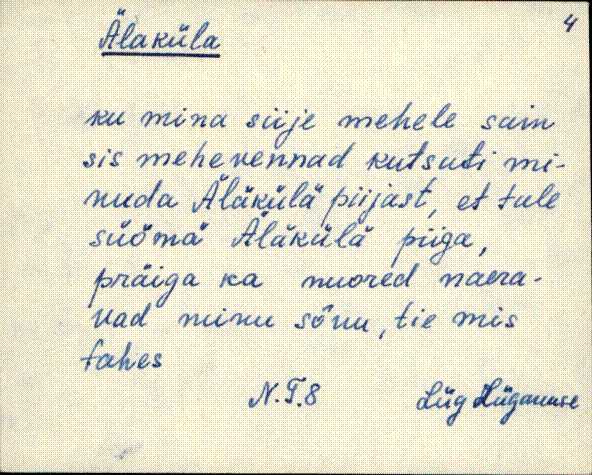 4
Äläküla
ku mina siije mehele sain
sis mehevennad kutsuti mi-
nuda Äläkülä piijast, et tule
süömä Äläkülä piiga,
präiga ka nuored naera-
vad minu sõnu, tie mis
tahes
N.T.8 Lüg Lüganuse